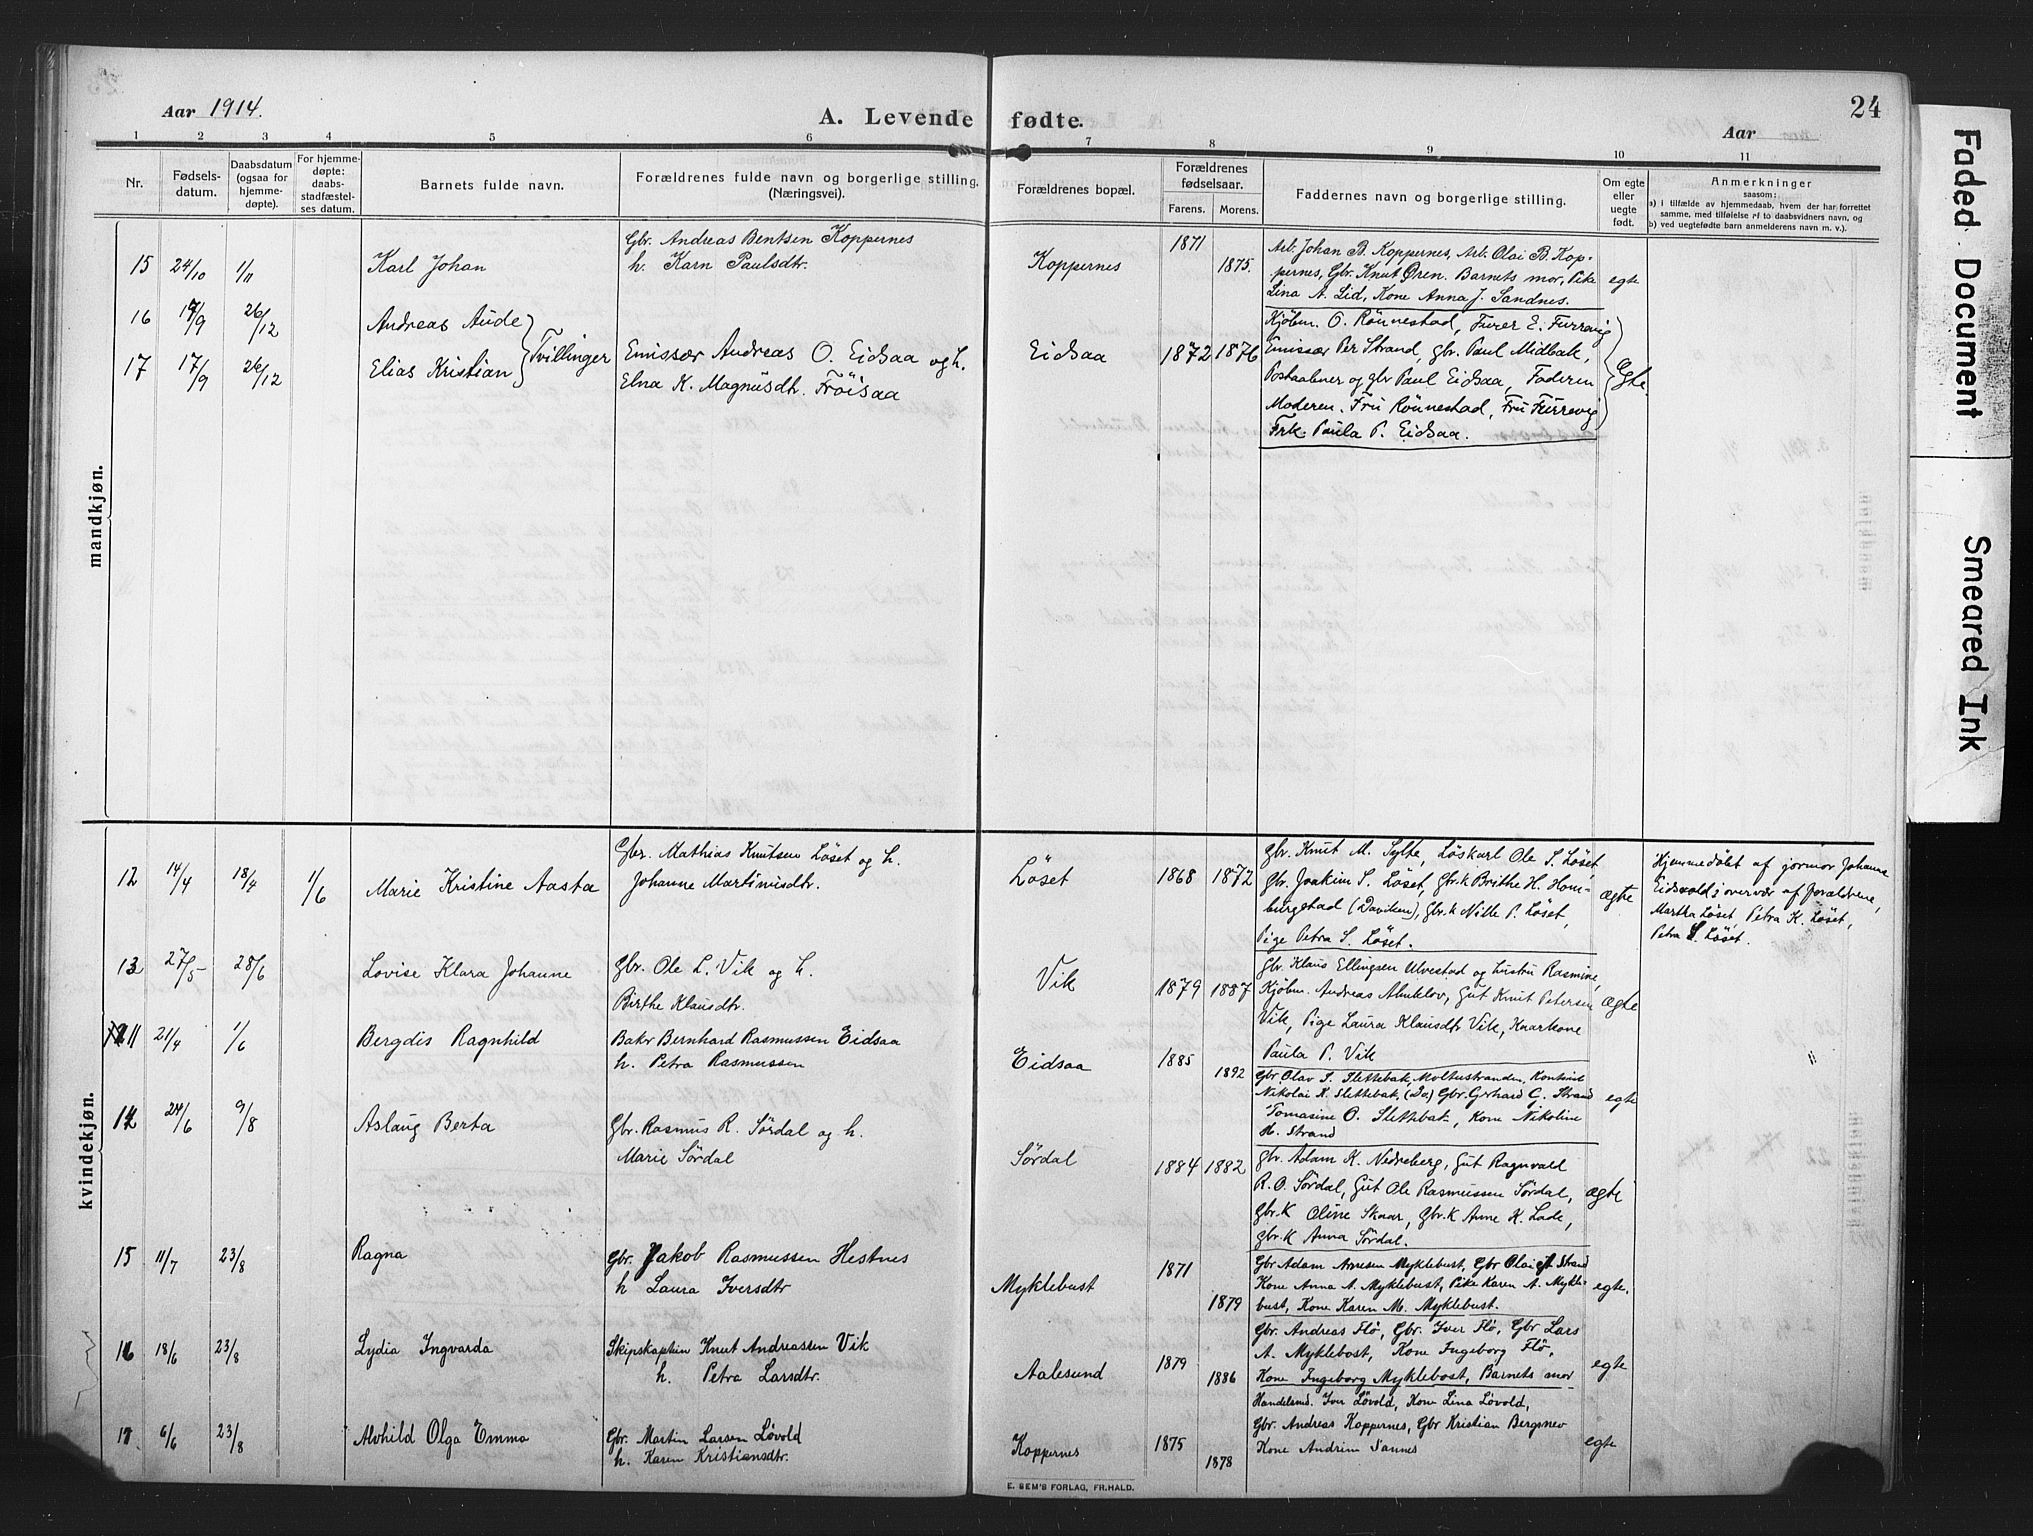 24
Aar 1914.
A. Levende fødte.
Aar
1 2 3 4 5 6 7 8 9 10 11
Nr.
Fødsels-
datum.
Daabsdatum
(ogsaa for
hjemme-
døpte).
For hjemme-
døpte:
daabs-
stadfæstel-
ses datum.
Barnets fulde navn.
Forældrenes fulde navn og borgerlige stilling.
(Næringsvei).
Forældrenes bopæl.
Forældrenes
fødselsaar.
Farens. Morens.
Faddernes navn og borgerlige stilling.
Om egte
eller
uegte
født.
Anmerkninger
saasom:
a) i tilfælde av hjemmedaab, hvem der har forrettet
samme, med tilføielse af to daabsvidners navn, og
b) ved uegtefødte barn anmelderens navn m. v.).
mandkjøn.
15 24/10 1/11 Karl Johan
Gbr. Andreas Bentsen Koppernes
h. Karn Paulsdtr.
Koppernes 1871 1875.
Arb. Johan B. Koppernes, Arb. Olai B. Kop-
pernes, Gbr. Knut Øren. Barnets mor, Pike
Lina A. Lid, Kone Anna J. Sandnes.
egte
16 17/9 26/12 Andreas Aude
17 17/9 26/12 Elias Kristian
Tvillinger
Emissær Andreas O. Eidsaa og h.
Elna K. Magnusdtr. Fröisaa
Eidsaa 1872 1876
Kjöbm. O. Rönnestad, Furer E. Furrevig
Emissær Per Strand, gbr. Paul Midbak,
Postaabner og gbr Paul Eidsaa, Faderen
Moderen. Fru Rönnestad, Fru Furrevig
Frk. Paula P. Eidsaa.
Egte.
kvindekjøn.
12 14/4 18/4 1/6 Marie Kristine Aasta
Gbr. Mathias Knutsen Löset og h.
Johanne Martinusdtr.
Löset 1868 1872
Gbr. Knut M. Sylte, Löskarl Ole S. Löset,
Gbr. Joakim S. Löset, Gbr.k Brithe H. Hom-
burgstad (Daviken), Gbr.k Nille P. Löset,
Pige Petra S. Löset.
ægte
Hjemmedöbt af jormor Johanne
Eidsvold i overvær af forældrene,
Martha Löset, Petra K. Löset,
Petra S. Löset.
13 27/5 28/6 Lovise Klara Johanne
Gbr. Ole L. Vik og h.
Birthe Klausdtr.
Vik 1879 1887
Gbr. Klaus Ellingsen Ulvestad og hustru Rasmine,
Kjöbm. Andreas Almklov, Gut Knut Petersen
Vik, Pige Laura Klausdtr Vik, Kaarkone
Paula P. Vik
ægte
11 21/4 1/6 Bergdis Ragnhild
Baker Bernhard Rasmussen Eidsaa
h. Petra Rasmussen
Eidsaa 1885 1892
Gbr. Olav S. Slettebak, Moltustranden, Kontorist
Nikolai K. Slettebak, (Do) Gbr. Gerhard G. Strand
Tomasine O. Slettebak, Kone Nikoline
H. Strand
egte
14 24/6 9/8 Aslaug Berta
Gbr. Rasmus R. Sördal og h.
Marie Sördal
Sördal 1884 1882
Gbr. Adam K. Nedreberg, Gut Ragnvald
R. O. Sördal, Gut Ole Rasmussen Sördal,
Gbr.k Oline Skaar, Gbr.k Anne K. Lade,
Gbr.k Anna Sördal.
ægte
15 11/7 23/8 Ragna
Gbr. Jakob Rasmussen Hestnes
h Laura Iversdtr
Myklebust 1871 1879
Gbr Adam Arnesen Myklebust, Gbr Olai Strand
Kone Anna A. Myklebust, Pike Karen A. Mykle-
bust, Kone Karen M. Myklebust.
egte.
16 18/6 23/8 Lydia Ingvarda
Skipskaptein Knut Andreassen Vik
h. Petra Larsdtr.
Aalesund 1879 1886
Gbr. Andreas Flö, Gbr. Iver Flö, Gbr Lars
A. Myklebost, Kone Ingeborg Flö,
Kone Ingeborg Myklebost, Barnets mor
egte
17 6/6 23/8 Alvhild Olga Emma
Gbr. Martin Larsen Lövold
h. Karen Kristiansdtr.
Koppernes 1875 1878
Handelsmd. Iver Lövold, Kone Lina Lövold,
Gbr. Andreas Koppernes, Gbr Kristian Bergsnev
Kone Andrine Sannes
egte
E. SEM'S FORLAG, FR.HALD.
Faded Document
Smeared Ink